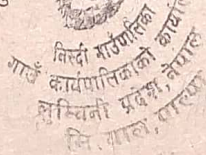 निस्दी गाउँपालिका
गाउँ कार्यपालिकाको कार्यालय
लुम्बिनी प्रदेश, नेपाल
पाल्पा